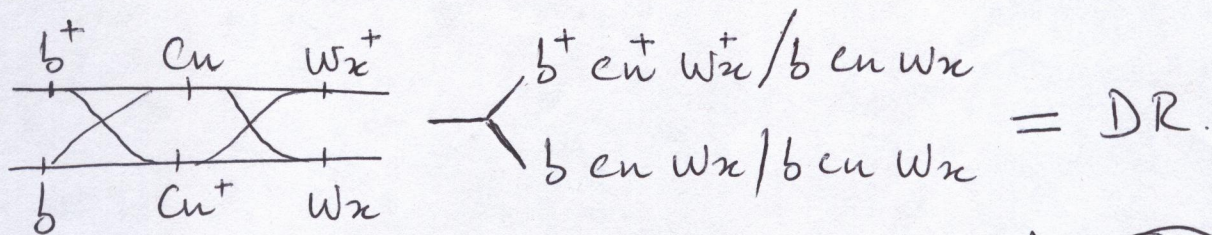 b⁺ Cn Wx⁺
b⁺ cn⁺ wx⁺/b cn wx
= DR.
b cn wx/b cn wx
b Cn⁺ Wx